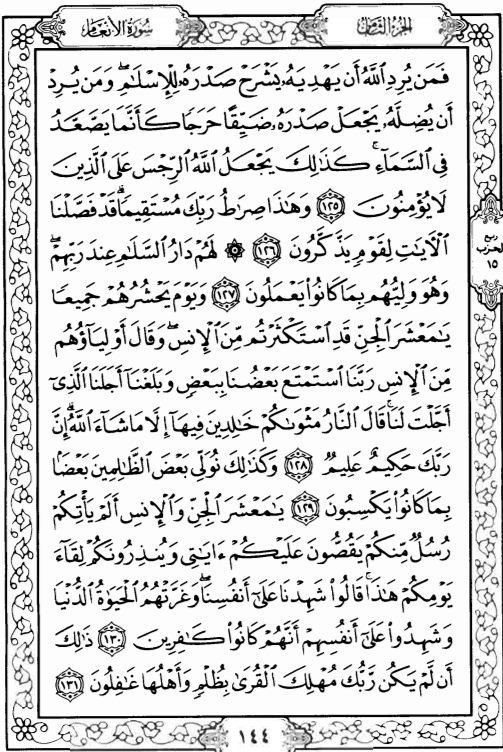 سُورَةُ الأَنْعَامِ
الجُزْءُ الثَّامِنُ
فَمَن يُرِدِ ٱللَّهُ أَن يَهْدِيَهُۥ يَشْرَحْ صَدْرَهُۥ لِلْإِسْلَـٰمِ ۖ وَمَن يُرِدْ
أَن يُضِلَّهُۥ يَجْعَلْ صَدْرَهُۥ ضَيِّقًا حَرَجًا كَأَنَّمَا يَصَّعَّدُ
فِى ٱلسَّمَآءِ ۚ كَذَٰلِكَ يَجْعَلُ ٱللَّهُ ٱلرِّجْسَ عَلَى ٱلَّذِينَ
لَا يُؤْمِنُونَ ١٢٥ وَهَـٰذَا صِرَٰطُ رَبِّكَ مُسْتَقِيمًا ۗ قَدْ فَصَّلْنَا
ٱلْـَٔايَـٰتِ لِقَوْمٍ يَذَّكَّرُونَ ١٢٦ ۞ لَهُمْ دَارُ ٱلسَّلَـٰمِ عِندَ رَبِّهِمْ ۖ
وَهُوَ وَلِيُّهُم بِمَا كَانُوا۟ يَعْمَلُونَ ١٢٧ وَيَوْمَ يَحْشُرُهُمْ جَمِيعًا
يَـٰمَعْشَرَ ٱلْجِنِّ قَدِ ٱسْتَكْثَرْتُم مِّنَ ٱلْإِنسِ ۖ وَقَالَ أَوْلِيَآؤُهُم
مِّنَ ٱلْإِنسِ رَبَّنَا ٱسْتَمْتَعَ بَعْضُنَا بِبَعْضٍ وَبَلَغْنَآ أَجَلَنَا ٱلَّذِىٓ
أَجَّلْتَ لَنَا ۚ قَالَ ٱلنَّارُ مَثْوَىٰكُمْ خَـٰلِدِينَ فِيهَآ إِلَّا مَا شَآءَ ٱللَّهُ ۗ إِنَّ
رَبَّكَ حَكِيمٌ عَلِيمٌ ١٢٨ وَكَذَٰلِكَ نُوَلِّى بَعْضَ ٱلظَّـٰلِمِينَ بَعْضًۢا
بِمَا كَانُوا۟ يَكْسِبُونَ ١٢٩ يَـٰمَعْشَرَ ٱلْجِنِّ وَٱلْإِنسِ أَلَمْ يَأْتِكُمْ
رُسُلٌ مِّنكُمْ يَقُصُّونَ عَلَيْكُمْ ءَايَـٰتِى وَيُنذِرُونَكُمْ لِقَآءَ
يَوْمِكُمْ هَـٰذَا ۚ قَالُوا۟ شَهِدْنَا عَلَىٰٓ أَنفُسِنَا ۖ وَغَرَّتْهُمُ ٱلْحَيَوٰةُ ٱلدُّنْيَا
وَشَهِدُوا۟ عَلَىٰٓ أَنفُسِهِمْ أَنَّهُمْ كَانُوا۟ كَـٰفِرِينَ ١٣٠ ذَٰلِكَ
أَن لَّمْ يَكُن رَّبُّكَ مُهْلِكَ ٱلْقُرَىٰ بِظُلْمٍ وَأَهْلُهَا غَـٰفِلُونَ ١٣١
ربع
الحزب
١٥
١٤٤